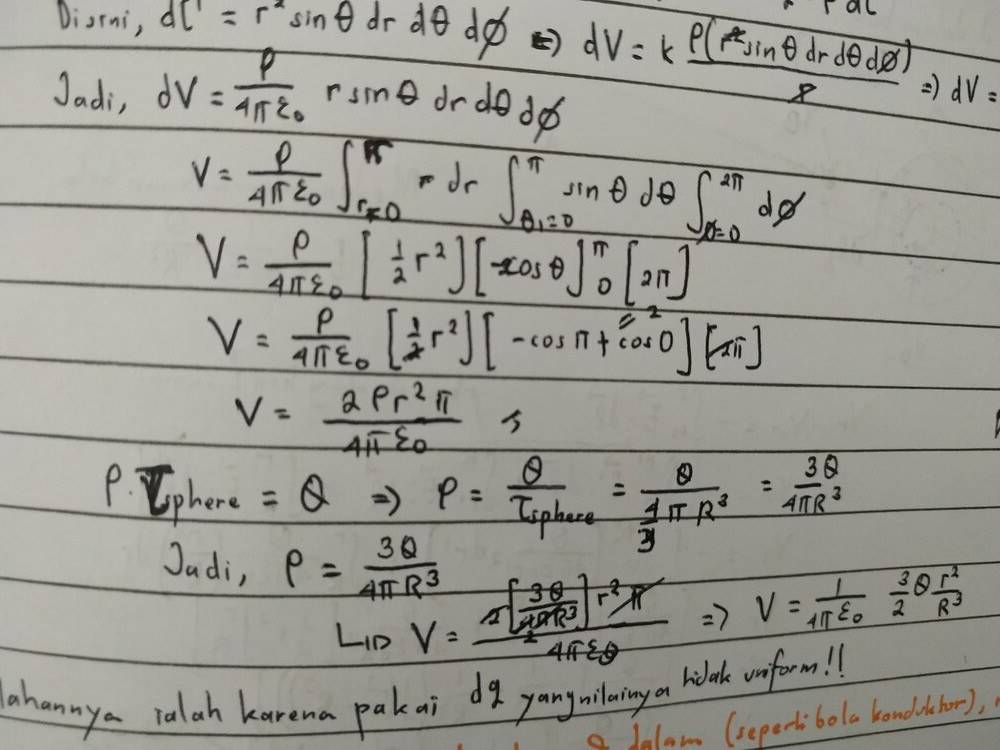 Disini, dτ' = r² sin θ dr dθ dϕ => dV = k ρ(r² sin θ dr dθ dϕ)/r => dV =
Jadi, dV = ρ/4πε₀ r sin θ dr dθ dϕ
V = ρ/4πε₀ ∫_{r=0} r dr ∫_{θ₁=0}^{π} sin θ dθ ∫_{ϕ=0}^{2π} dϕ
V = ρ/4πε₀ [½ r²] [-cos θ]₀^π [2π]
V = ρ/4πε₀ [½ r²] [-cos π + cos 0] [2π]
V = 2ρr²π/4πε₀
ρ.τsphere = Q => ρ = Q/τsphere = Q/(4/3 πR³) = 3Q/4πR³
Jadi, ρ = 3Q/4πR³
V = 2[3Q/4πR³] r² π/4πε₀ => V = 1/4πε₀ 3/2 Q r²/R³
lahannya ialah karena pakai dq yang nilainya tidak uniform!!
dalam (seperti bola konduktor),